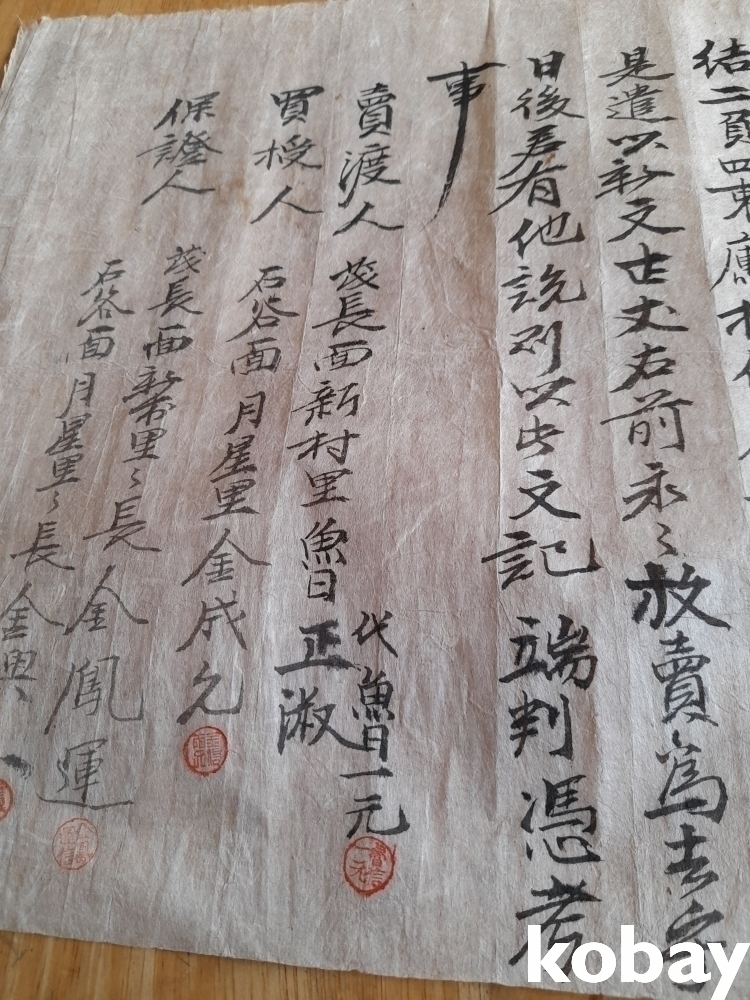 結二負四束庫
是遣以新文古丈右前永〻放賣爲去乎
日後若有他說則以此文記 端判憑考
事
賣渡人 茂長面新村里魯正淑
代魯一元
買授人 石谷面月星里金成允
保證人 茂長面新村里〻長金鳳運
石谷面月星里〻長金興
kobay